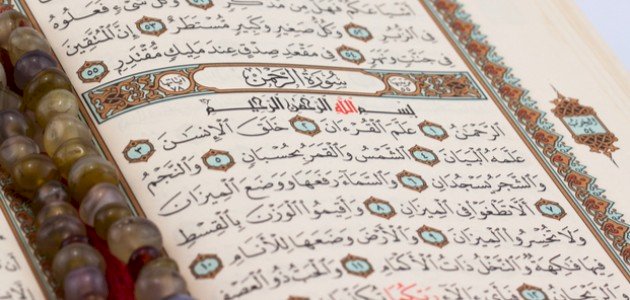 أَشْيَاعَكُمْ فَهَلْ مِن مُّدَّكِرٍ ٥١ وَكُلُّ شَىْءٍ فَعَلُوهُ
فِى الزُّبُرِ ٥٢ وَكُلُّ صَغِيرٍ وَكَبِيرٍ مُّسْتَطَرٌ ٥٣ إِنَّ الْمُتَّقِينَ
فِى جَنَّٰتٍ وَنَهَرٍ ٥٤ فِى مَقْعَدِ صِدْقٍ عِندَ مَلِيكٍ مُّقْتَدِرٍ ٥٥
سُورَةُ الرَّحْمَٰن
بِسْمِ اللَّهِ الرَّحْمَٰنِ الرَّحِيمِ
الرَّحْمَٰنُ ١ عَلَّمَ الْقُرْءَانَ ٢ خَلَقَ الْإِنسَٰنَ ٣
عَلَّمَهُ الْبَيَانَ ٤ الشَّمْسُ وَالْقَمَرُ بِحُسْبَانٍ ٥ وَالنَّجْمُ
وَالشَّجَرُ يَسْجُدَانِ ٦ وَالسَّمَاءَ رَفَعَهَا وَوَضَعَ الْمِيزَانَ ٧
أَلَّا تَطْغَوْا فِى الْمِيزَانِ ٨ وَأَقِيمُوا الْوَزْنَ بِالْقِسْطِ
وَلَا تُخْسِرُوا الْمِيزَانَ ٩ وَالْأَرْضَ وَضَعَهَا لِلْأَنَامِ ١٠
فِيهَا فَٰكِهَةٌ وَالنَّخْلُ ذَاتُ الْأَكْمَامِ ١١ وَالْحَبُّ ذُو الْعَصْفِ